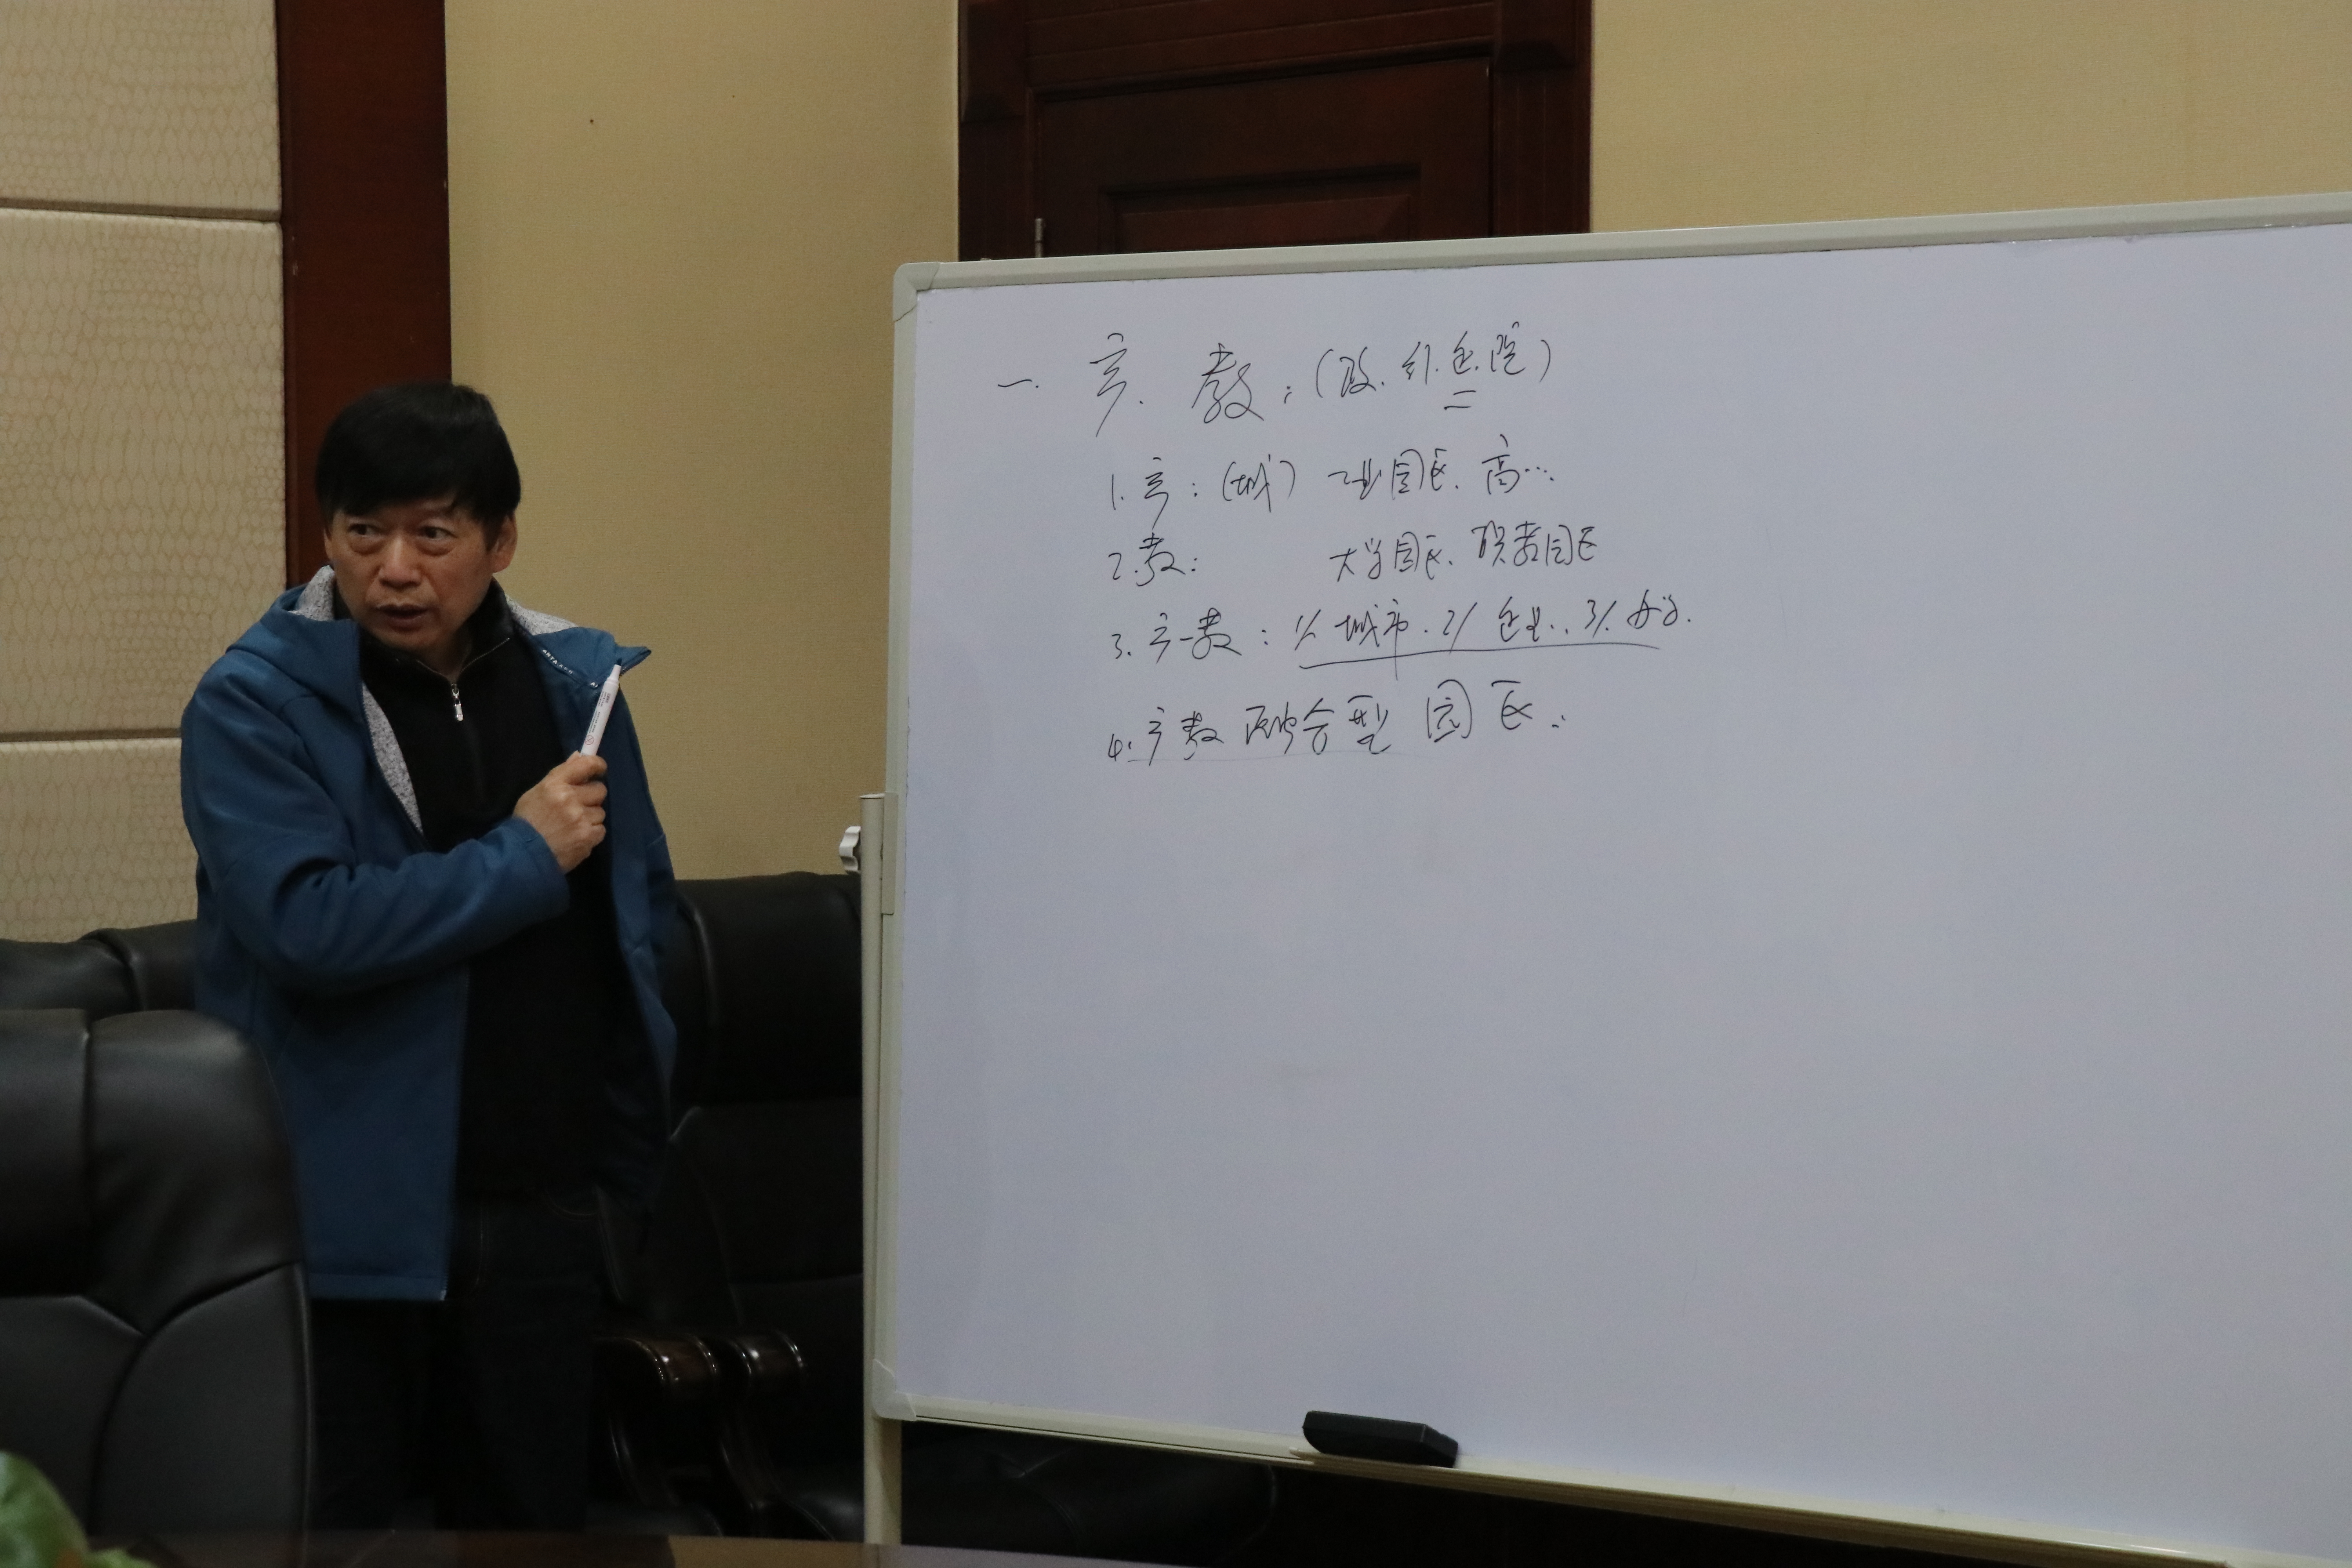 一. 产. 教:(政. 行. 企. 院)
1. 产:(城) 工业园区. 高…
2. 教: 大学园区. 职教园区
3. 产-教: 1/ 城市. 2/ 企业.. 3/. 办学.
4. 产教融合型园区..